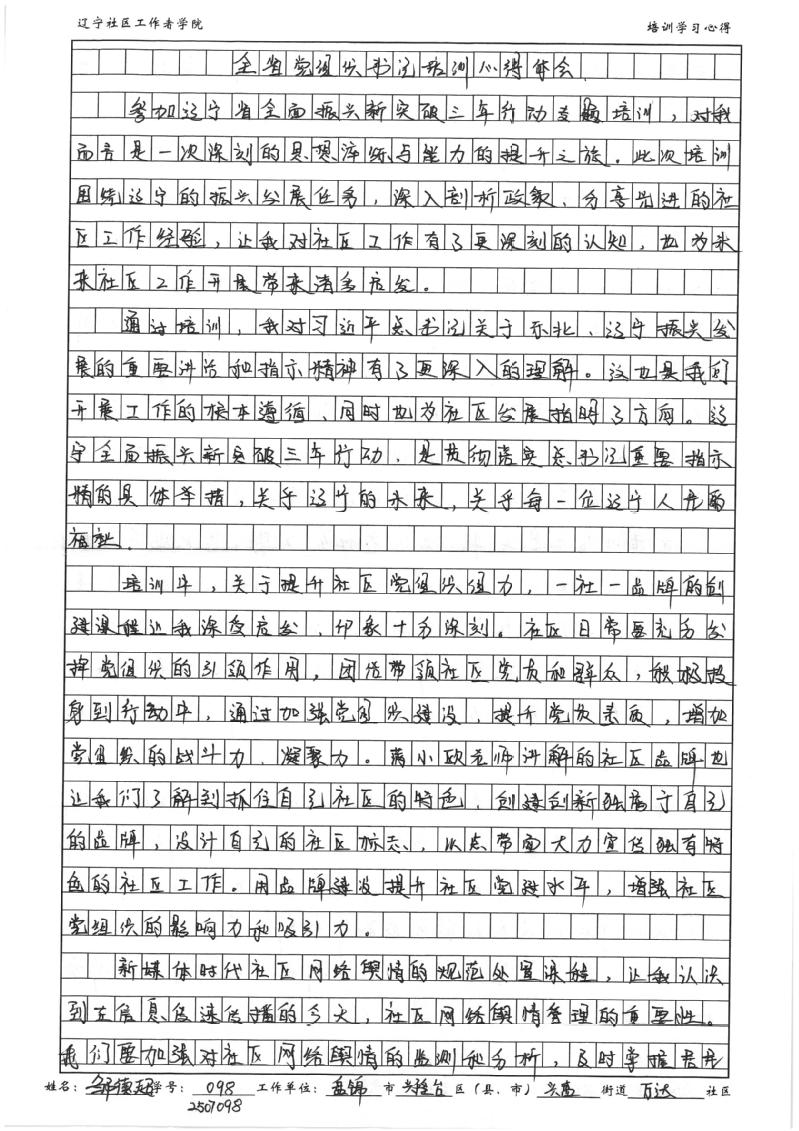 辽宁社区工作者学院
培训学习心得
全省党组织书记培训心得体会
参加辽宁省全面振兴新突破三年行动专题培训，对我
而言是一次深刻的思想淬炼与能力的提升之旅。此次培训
围绕辽宁的振兴发展任务，深入剖析政策、分享先进的社
区工作经验，让我对社区工作有了更深刻的认知，也为未
来社区工作开展带来诸多启发。
通过培训，我对习近平总书记关于东北、辽宁振兴发
展的重要讲话和指示精神有了更深入的理解。这也是我们
开展工作的根本遵循、同时也为社区发展指明了方向。辽
宁全面振兴新突破三年行动，是贯彻落实总书记重要指示
精的具体举措，关乎辽宁的未来，关乎每一位辽宁人民的
福祉。
培训中，关于提升社区党组织组力，一社一品牌的创
建课程让我深受启发、印象十分深刻。社区日常要充分发
挥党组织的引领作用，团结带领社区党员和群众，积极投
身到行动中，通过加强党组织建设，提升党员素质，增加
党组织的战斗力、凝聚力。蒋小欧老师讲解的社区品牌也
让我们了解到抓住自己社区的特色、创建创新独属于自己
的品牌，设计自己的社区标志、以点带面大力宣传独有特
色的社区工作。用品牌建设提升社区党建水平，增强社区
党组织的影响力和吸引力。
新媒体时代社区网络舆情的规范处置课程，让我认识
到在信息急速传播的今天，社区网络舆情管理的重要性。
我们要加强对社区网络舆情的监测和分析，及时掌握居民
姓名：邹德超 学号：098 工作单位：盘锦 市 兴隆台 区（县、市） 兴盛 街道 万达 社区
2507098